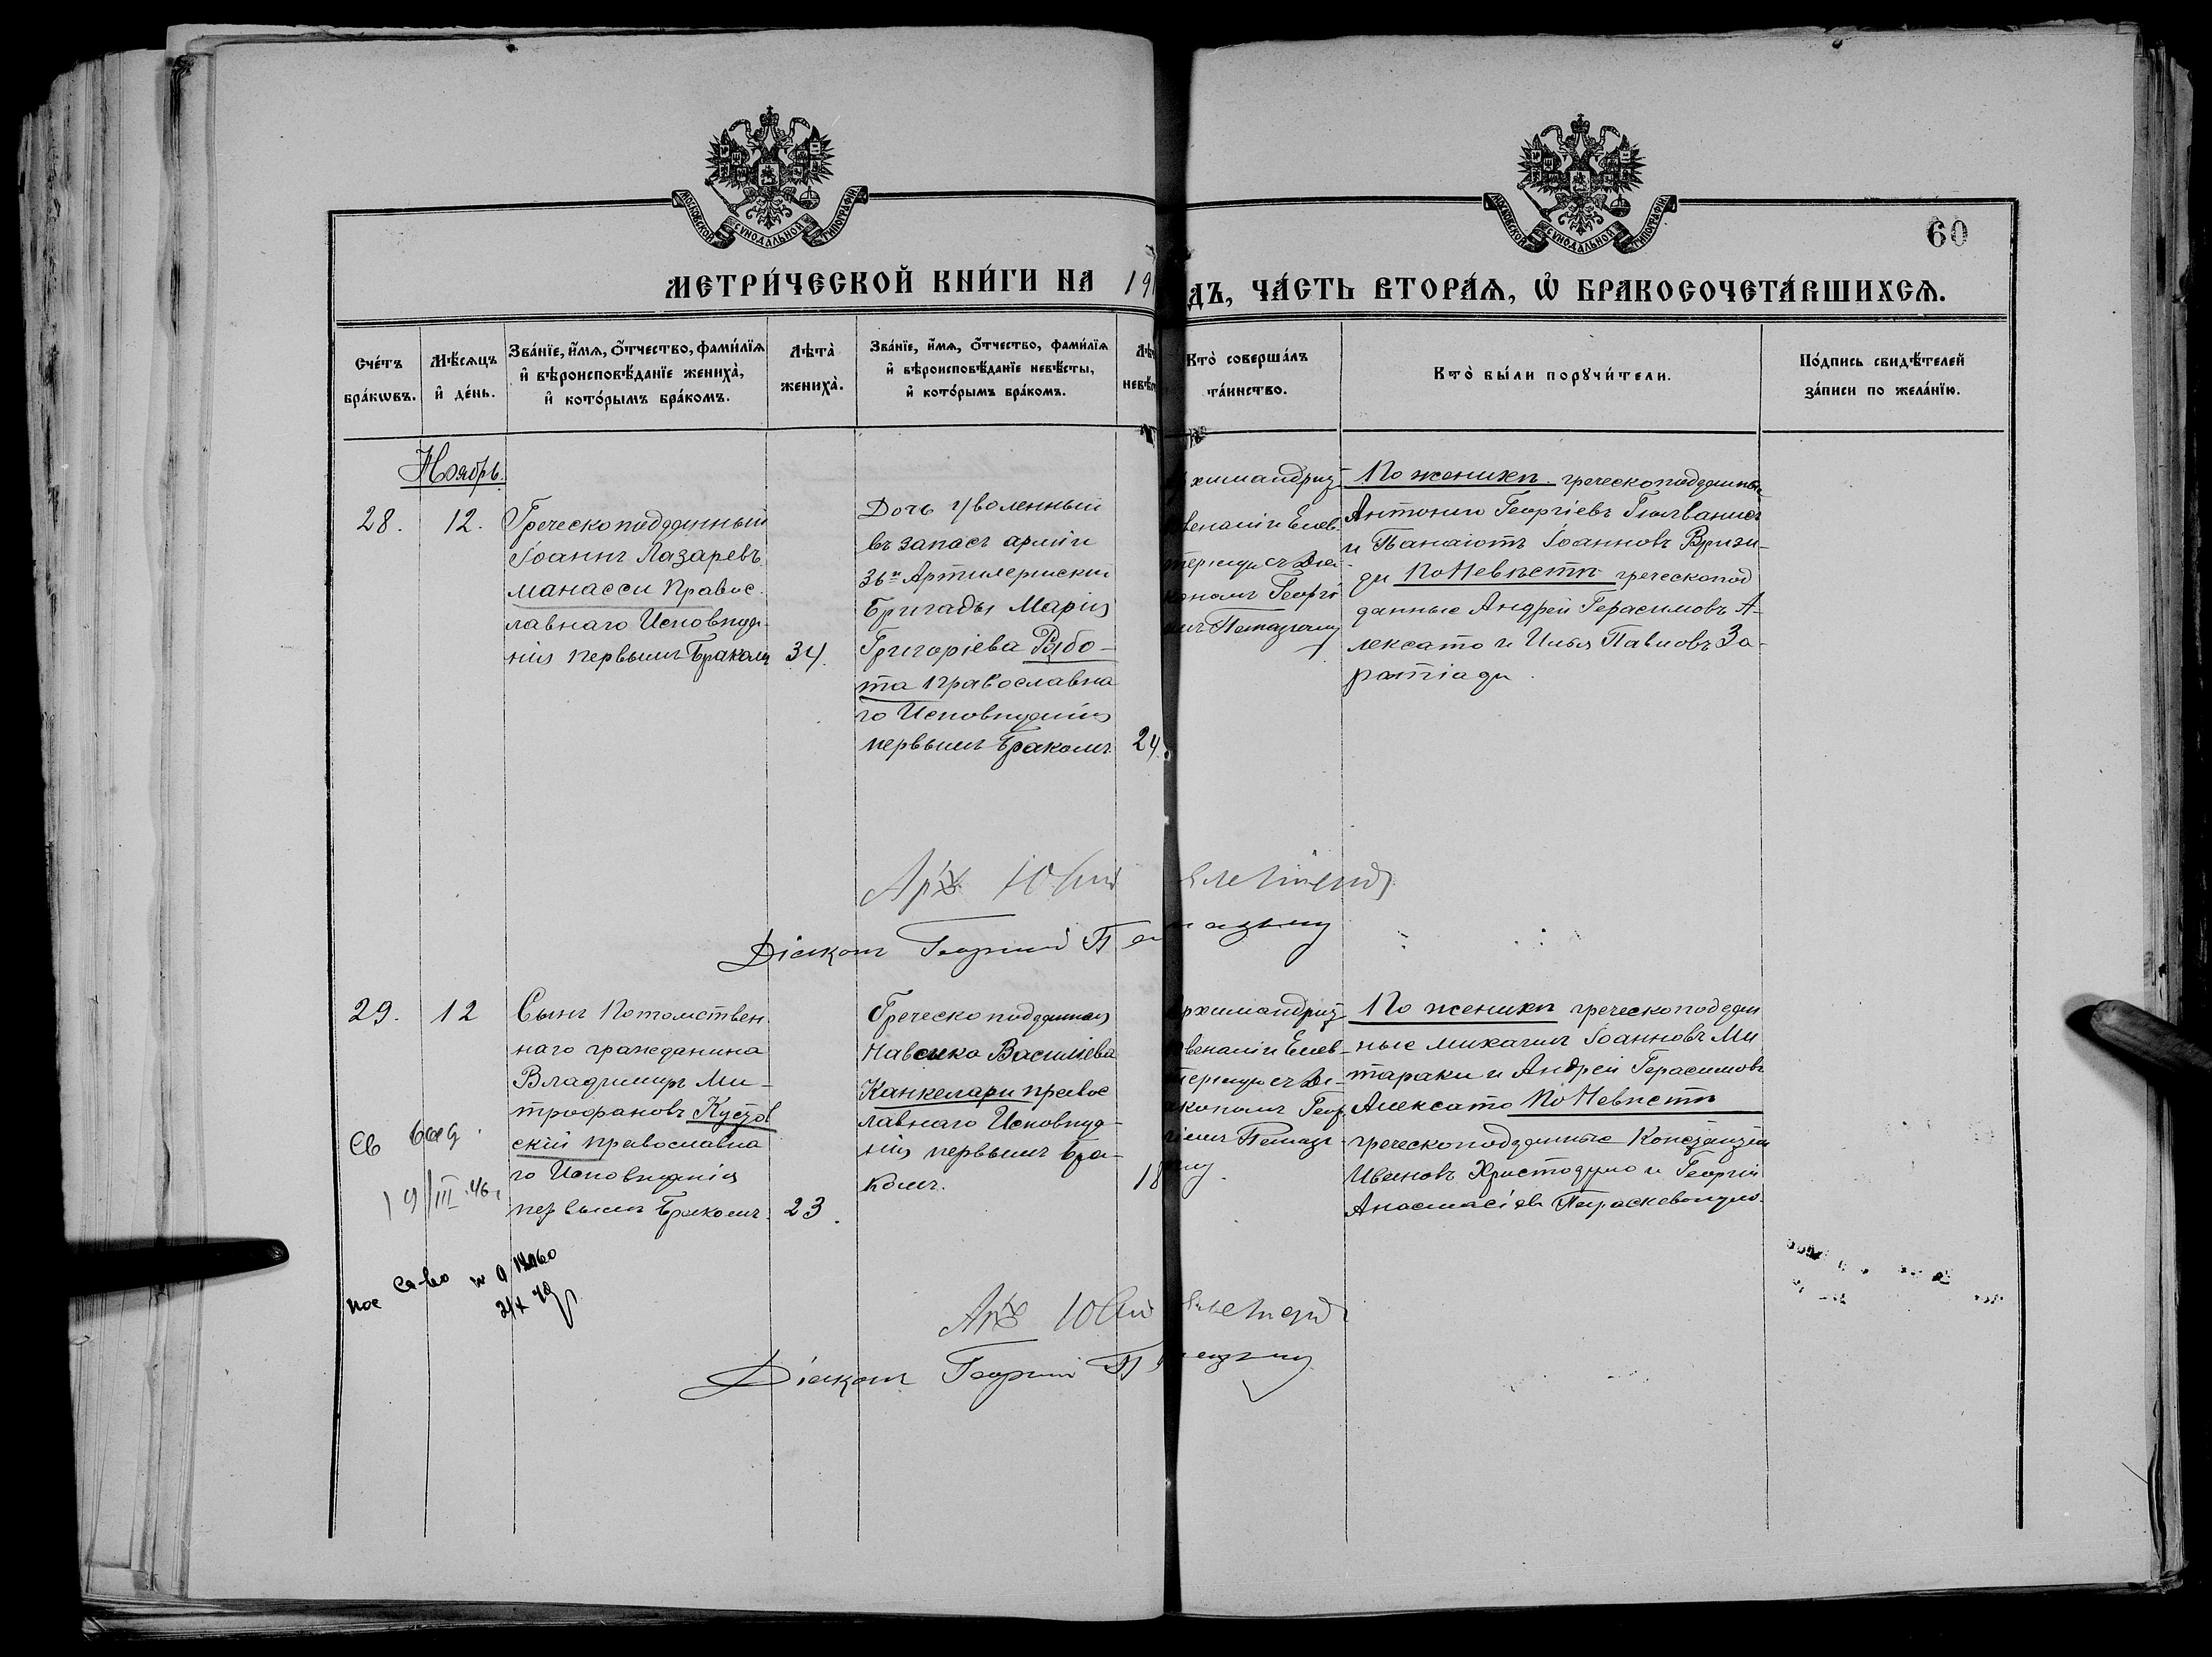 МОСКОВСКОЙ СУНОДАЛЬНОЙ ТИПОГРАФІИ
МОСКОВСКОЙ СУНОДАЛЬНОЙ ТИПОГРАФІИ
60
МЕТРИ́ЧЕСКОЙ КНИ́ГИ НА 191
ДЪ, ЧА́СТЬ ВТОРА́Ѧ, Ѡ БРАКОСОЧЕТА́ВШИХСѦ.
Сче́тъ
бра́кѡвъ.
Мѣ́сѧцъ
и де́нь.
Зва́нїе, и́мѧ, ѻ́тчество, фами́лїѧ
и вѣроисповѣ́данїе жениха̀,
и кото́рымъ бра́комъ.
Лѣта̀
жениха̀.
Зва́нїе, и́мѧ, ѻ́тчество, фами́лїѧ
и вѣроисповѣ́данїе невѣ́сты,
и кото́рымъ бра́комъ.
Лѣ
невѣ
Кто̀ соверша́лъ
та́инство.
Кто̀ бы́ли порꙋчи́тели.
По́дпись свидѣ́телей
за́писи по жела́нїю.
Ноябрь.
28.
12.
Греческоподданный
Іоаннъ Лазаревъ
манасси Правос
лавнаго Исповѣда
нія первымъ Бракомъ
34.
Дочь уволенный
въ запасъ арміи
36й Артилерійскій
Бригады Марія
Григоріева Рябо-
та Православна
го Исповѣданія
первымъ Бракомъ
24.
рхимандрит
веналій Елев-
терiу съ Діа-
кономъ Георгі
емъ Петазгоіу
По женихѣ. греческоподданные
Антоній Георгіевъ Гюлванисъ
и Панаіотъ Іоанновъ Вризи-
ди По Невѣстѣ греческопод
данные Андрей Герасимовъ А-
лексато и Илья Павловъ За-
ратіади.
Арх Юве
Діаконъ Георгій
29.
12
Сынъ Потомствен
наго гражданина
Владимиръ Ми-
трофановъ
скій православна
го Исповѣданія
первымъ Бракомъ.
23.
Греческо подданная
Навсика Василіева
Канкелари правос
лавнаго Исповѣда-
нія первымъ Бра-
комъ.
18
рхимандрит
веналій Елев-
съ Ді-
акономъ Геор
гіемъ
По женихѣ греческоподдан
ные михаилъ Іоанновъ Ми
тараки и Андрей Герасимовъ
Алексато По Невѣстѣ
греческоподданные Константин
Ивановъ Христодуло и Георгій
Анастасіев Параскевопуло.
Св выд.
19/III.46г
Св-во
Арх Юве
Діаконъ Георгій